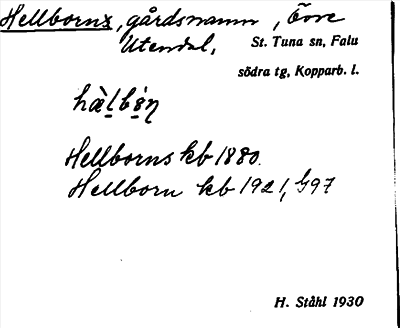 Hellborns, gårdsnamn, Övre
Utendal, St. Tuna sn, Falu
södra tg, Kopparb. l.
Hellborns kb 1880.
Hellborn kb 1921, 497
H. Ståhl 1930